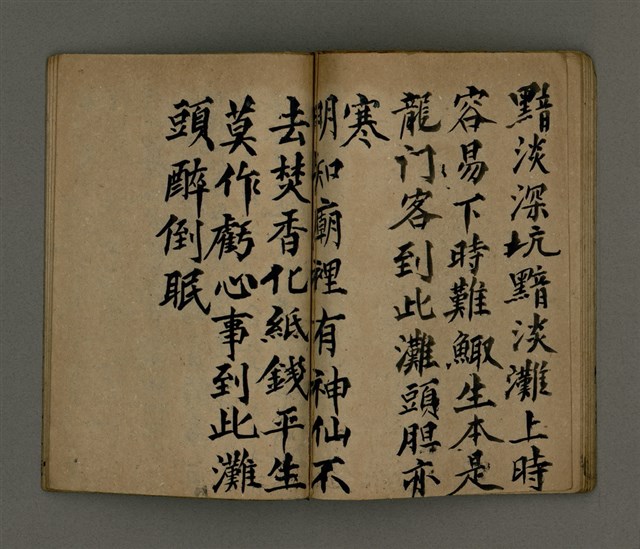 黯淡深坑黯淡灘上時
容易下時難鯫生本是
龍门客到此灘頭胆亦
寒
明知廟裡有神仙不
去焚香化紙錢平生
莫作虧心事到此灘
頭醉倒眠